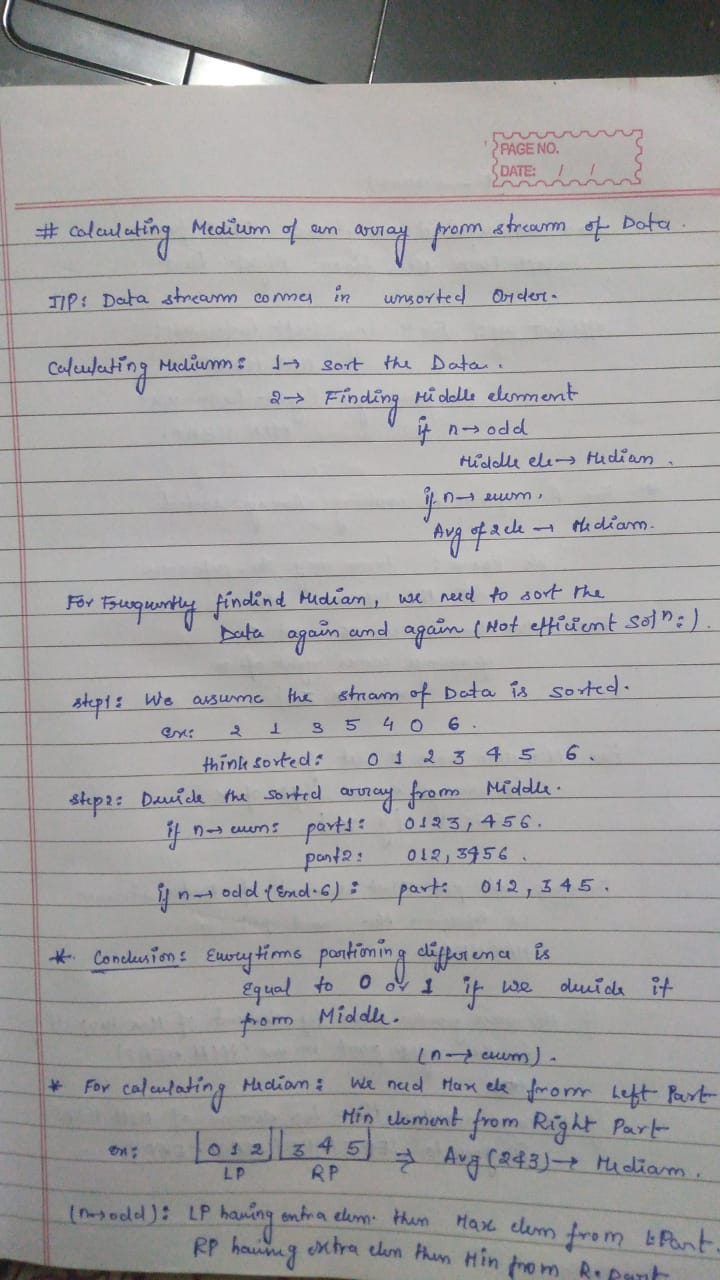 PAGE NO.
DATE: / /
# Calculating Medium of an array from stream of Data.
I/P: Data stream comes in unsorted Order.
Calculating Medium: 1→ sort the Data.
2→ Finding Middle element
if n→ odd
Middle ele→ Median.
if n→ even,
Avg of 2 ele → Median.
For Frequently findind Median, we need to sort the
Data again and again (Not efficient Solⁿ:).
step1: We assume the stream of Data is sorted.
ex: 2 1 3 5 4 0 6.
think sorted: 0 1 2 3 4 5 6.
step2: Devide the sorted array from Middle.
if n→ even: part1: 0123, 456.
part2: 012, 3456.
if n→ odd (End-6): part: 012, 345.
* Conclusion: Everytime partioning difference is
Equal to 0 or 1 if we devide it
from Middle.
(n→ even).
* For calculating Median: We need Max ele from Left Part
Min element from Right Part
ex: |0 1 2||3 4 5| ⇒ Avg(2&3)→ Median.
LP RP
(n→odd): LP having extra elem. then Max elem from L Part.
RP having extra elem then Min from R. part